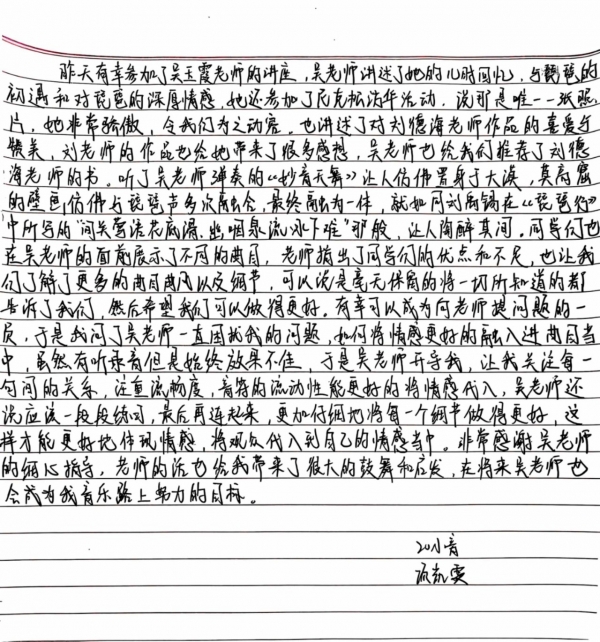 昨天有幸参加了吴玉霞老师的讲座，吴老师讲述了她的儿时回忆，与琵琶的
初遇和对琵琶的深厚情感，她还参加了尼克松访华活动，说那是唯一一张照
片，她非常骄傲，令我们为之动容。也讲述了对刘德海老师作品的喜爱与
赞美，刘老师的作品也给她带来了很多感想，吴老师也给我们推荐了刘德
海老师的书。听了吴老师弹奏的《妙音天舞》让人仿佛置身于大漠，莫高窟
的壁画仿佛与琵琶声多次融合，最终融为一体，就如同刘禹锡在《琵琶行》
中所写的"间关莺语花底滑，幽咽泉流冰下难"那般，让人陶醉其间。同学们也
在吴老师的面前展示了不同的曲目，老师指出了同学们的优点和不足，也让我
们了解了更多的曲目曲风以及细节，可以说是毫无保留的将一切所知道的都
告诉了我们，然后希望我们可以做得更好。有幸可以成为向老师提问题的一
员，于是我问了吴老师一直困扰我的问题，如何将情感更好的融入进曲目当
中，虽然有听录音但是始终效果不佳，于是吴老师开导我，让我关注每一
句间的关系，注重流畅度，音符的流动性能更好的将情感代入，吴老师还
说应该一段段练习，最后再连起来，更加仔细地将每一个细节做得更好，这
样才能更好地体现情感，将观众代入到自己的情感当中。非常感谢吴老师
的细心指导，老师的话也给我带来了很大的鼓舞和启发，在将来吴老师也
会成为我音乐路上努力的目标。